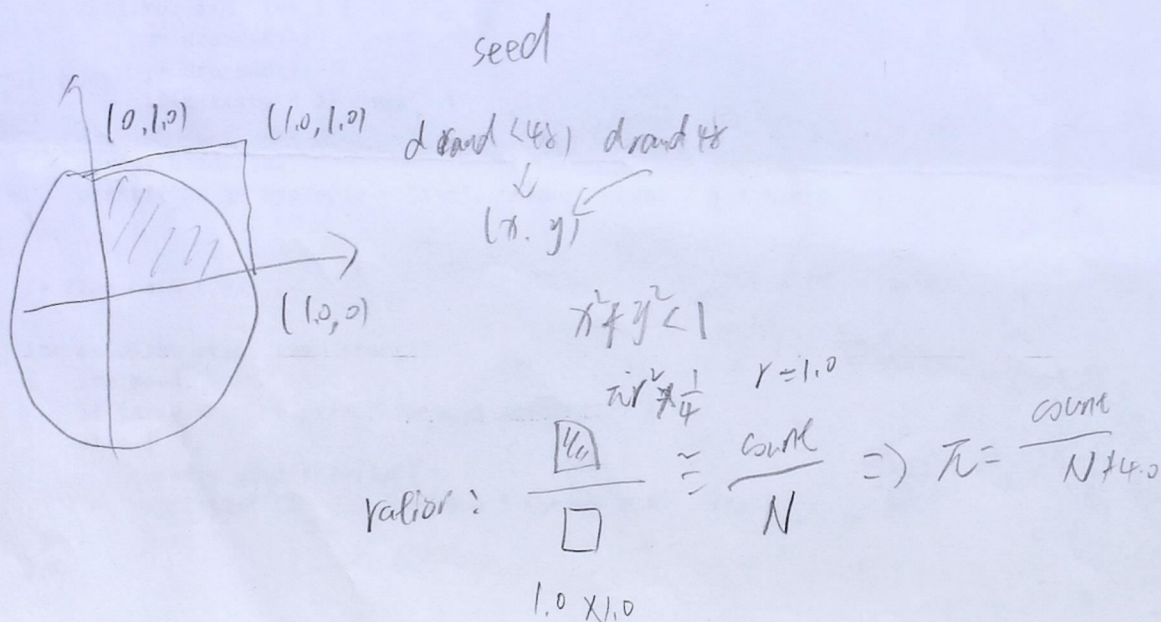 seed
(0,1.0) (1.0,1.0)
drand(48) drand48
(x, y)
(1.0,0)
x²+y²<1
πr²*1/4 r=1.0
ratior: ≅ count/N => π= count/N*4.0
1.0 x1.0